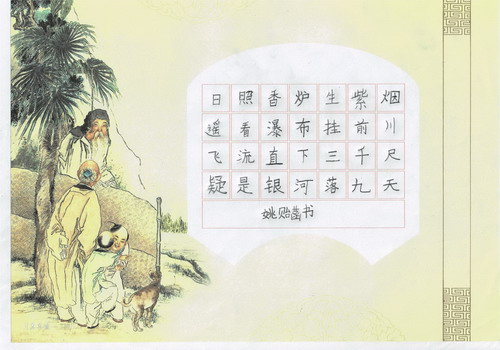 日照香炉生紫烟
遥看瀑布挂前川
飞流直下三千尺
疑是银河落九天
姚贻 书